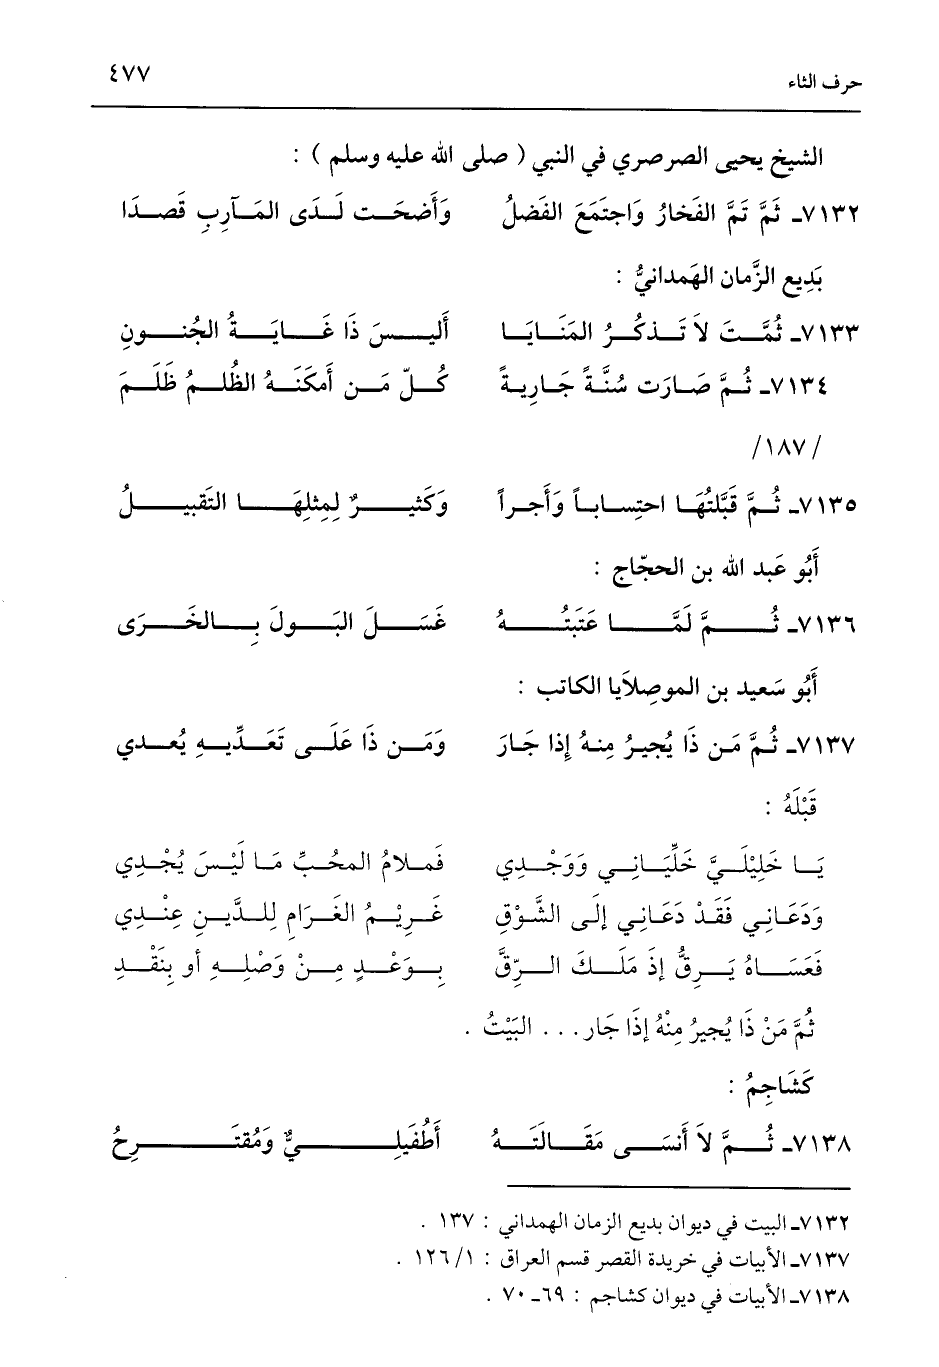 حرف الثاء ٤٧٧
الشيخ يحيى الصرصري في النبي ( صلى الله عليه وسلم ) :
٧١٣٢ـ ثُمَّ تَمَّ الفَخارُ وَاجتَمَعَ الفَضلُ وَأَضحَت لَدَى المَآرِبِ قَصدَا
بَدِيع الزَّمان الهَمدانيُّ :
٧١٣٣ـ ثُمَّتَ لاَ تَذكُرُ المَنَايَا أَلَيسَ ذَا غَايَةُ الجُنونِ
٧١٣٤ـ ثُمَّ صَارَت سُنَّةً جَارِيةً كُلّ مَن أَمكَنَهُ الظُلمُ ظَلَمَ
/١٨٧/
٧١٣٥ـ ثُمَّ قَبَّلتُهَا احتِساباً وَأَجراً وَكَثيرٌ لِمِثلِهَا التَقبيلُ
أَبُو عَبد الله بن الحجّاج :
٧١٣٦ـ ثُمَّ لَمَّا عَتَبتُهُ غَسَلَ البَولَ بِالخَرَى
أَبُو سَعيد بن الموصِلاَيا الكاتب :
٧١٣٧ـ ثُمَّ مَن ذَا يُجيرُ مِنهُ إِذا جَارَ وَمَن ذَا عَلَى تَعَدِّيهِ يُعدي
قَبْلَهُ :
يَا خَلِيْلَيَّ خَلِّيَانِي وَوَجْدِي فَملامُ المحُبِّ مَا لَيْسَ يُجْدِي
وَدَعَانِي فَقَدْ دَعَانِي إِلَى الشَّوْقِ غَرِيْمُ الغَرَامِ لِلدَّينِ عِنْدِي
فَعَسَاهُ يَرِقُّ إِذ مَلَكَ الرِّقَّ بِوَعْدٍ مِنْ وَصْلِهِ أو بِنَقْدِ
ثُمَّ مَنْ ذَا يُجيرُ مِنْهُ إِذَا جَار. . . البَيْتُ .
كَشَاجِمُ :
٧١٣٨ـ ثُمَّ لاَ أَنسَى مَقَالَتَهُ أَطُفَيلِيٌّ وَمُقتَرِحُ
٧١٣٢ـ البيت في ديوان بديع الزمان الهمداني : ١٣٧ .
٧١٣٧ـ الأبيات في خريدة القصر قسم العراق : ١/ ١٢٦ .
٧١٣٨ـ الأبيات في ديوان كشاجم : ٦٩ـ ٧٠ .